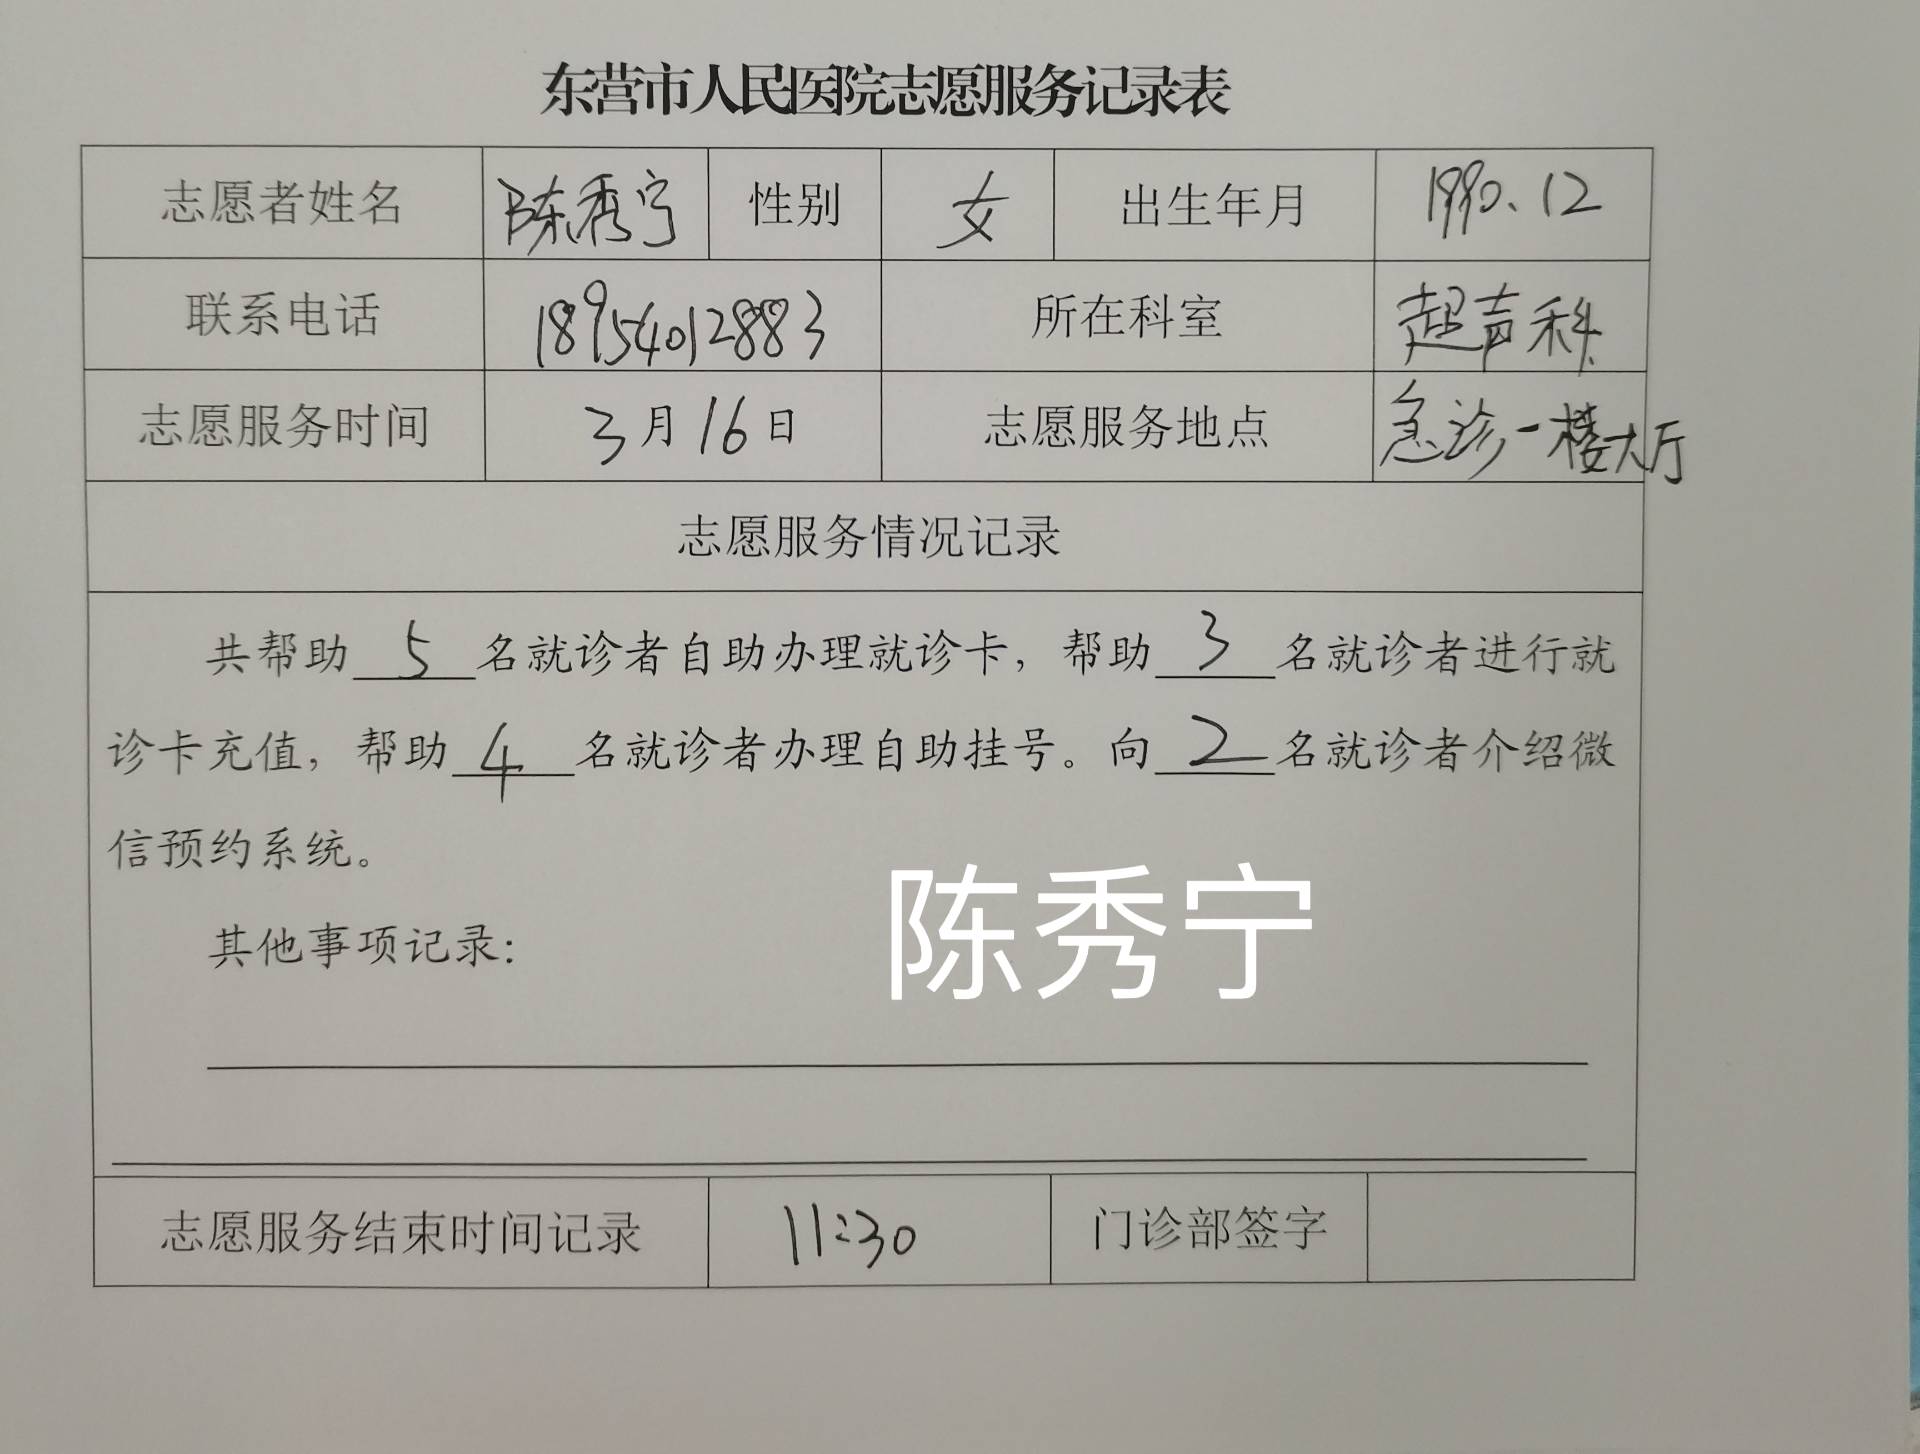 东营市人民医院志愿服务记录表
志愿者姓名 陈秀宁 性别 女 出生年月 1990.12
联系电话 18954012883 所在科室 超声科
志愿服务时间 3月16日 志愿服务地点 急诊一楼大厅
志愿服务情况记录
共帮助5名就诊者自助办理就诊卡，帮助3名就诊者进行就
诊卡充值，帮助4名就诊者办理自助挂号。向2名就诊者介绍微
信预约系统。
陈秀宁
其他事项记录：
志愿服务结束时间记录 11:30 门诊部签字